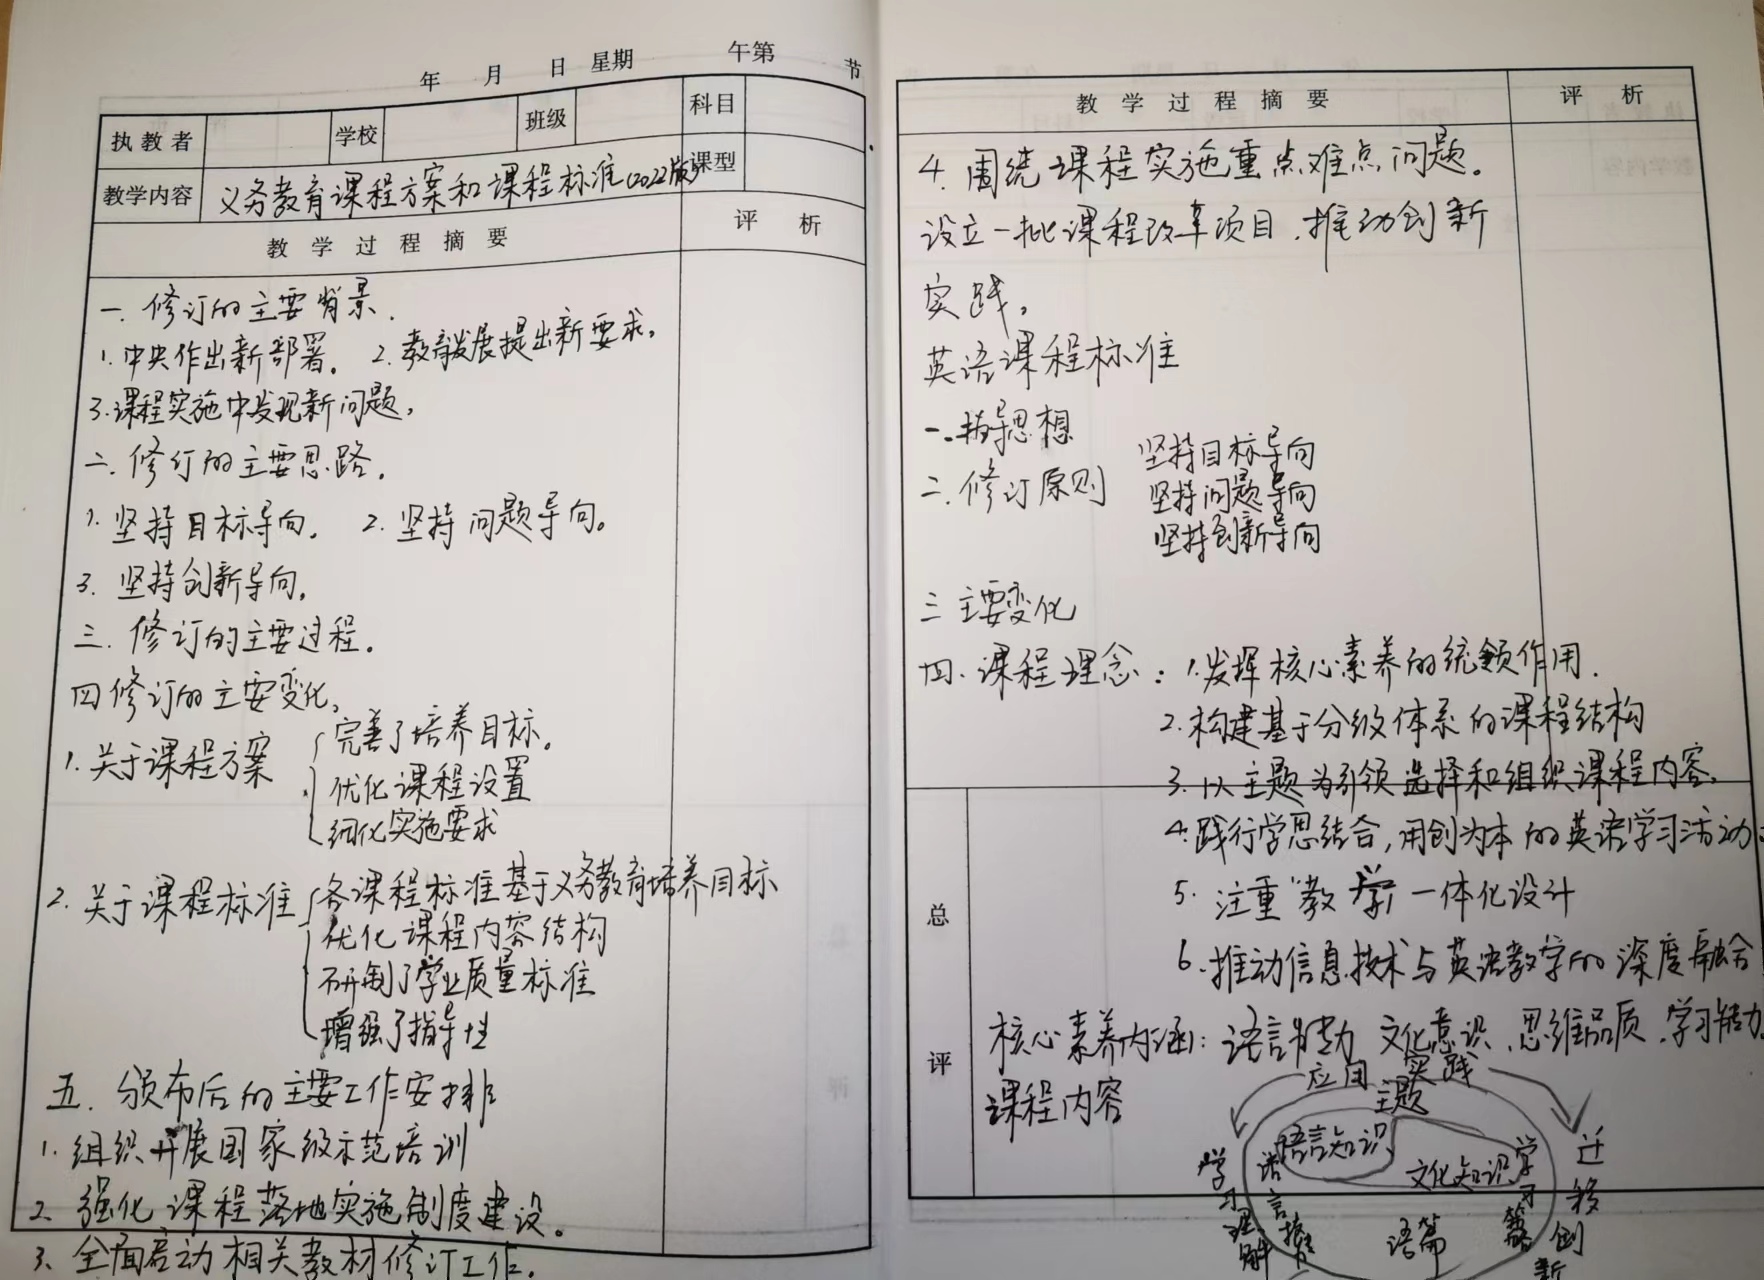 年 月 日 星期 午第 节
执教者 学校 班级 科目
教学内容 义务教育课程方案和课程标准(2022版) 课型
教学过程摘要 评析
一. 修订的主要背景.
1. 中央作出新部署. 2. 教育发展提出新要求.
3. 课程实施中发现新问题.
二. 修订的主要思路.
1. 坚持目标导向. 2. 坚持问题导向。
3. 坚持创新导向.
三. 修订的主要过程.
四 修订的主要变化.
1. 关于课程方案
完善了培养目标。
优化课程设置
细化实施要求
2. 关于课程标准
各课程标准基于义务教育培养目标
优化课程内容结构
研制了学业质量标准
增强了指导性
五. 颁布后的主要工作安排
1. 组织开展国家级示范培训
2. 强化课程落地实施制度建设。
3、全面启动相关教材修订工作.
教学过程摘要 评析
4. 围绕课程实施重点难点问题。
设立一批课程改革项目.推动创新
实践。
英语课程标准
一. 指导思想
二. 修订原则
坚持目标导向
坚持问题导向
坚持创新导向
三 主要变化
四. 课程理念: 1. 发挥核心素养的统领作用.
2. 构建基于分级体系的课程结构
3. 以主题为引领选择和组织课程内容.
4. 践行学思结合,用创为本的英语学习活动
5. 注重"教学"一体化设计
6. 推动信息技术与英语教学的深度融合
总评
核心素养内涵: 语言能力 文化意识.思维品质.学习能力
课程内容
应用实践
主题
语言知识
文化知识
语篇
语言技能
学习策略
学习理解
迁移创新